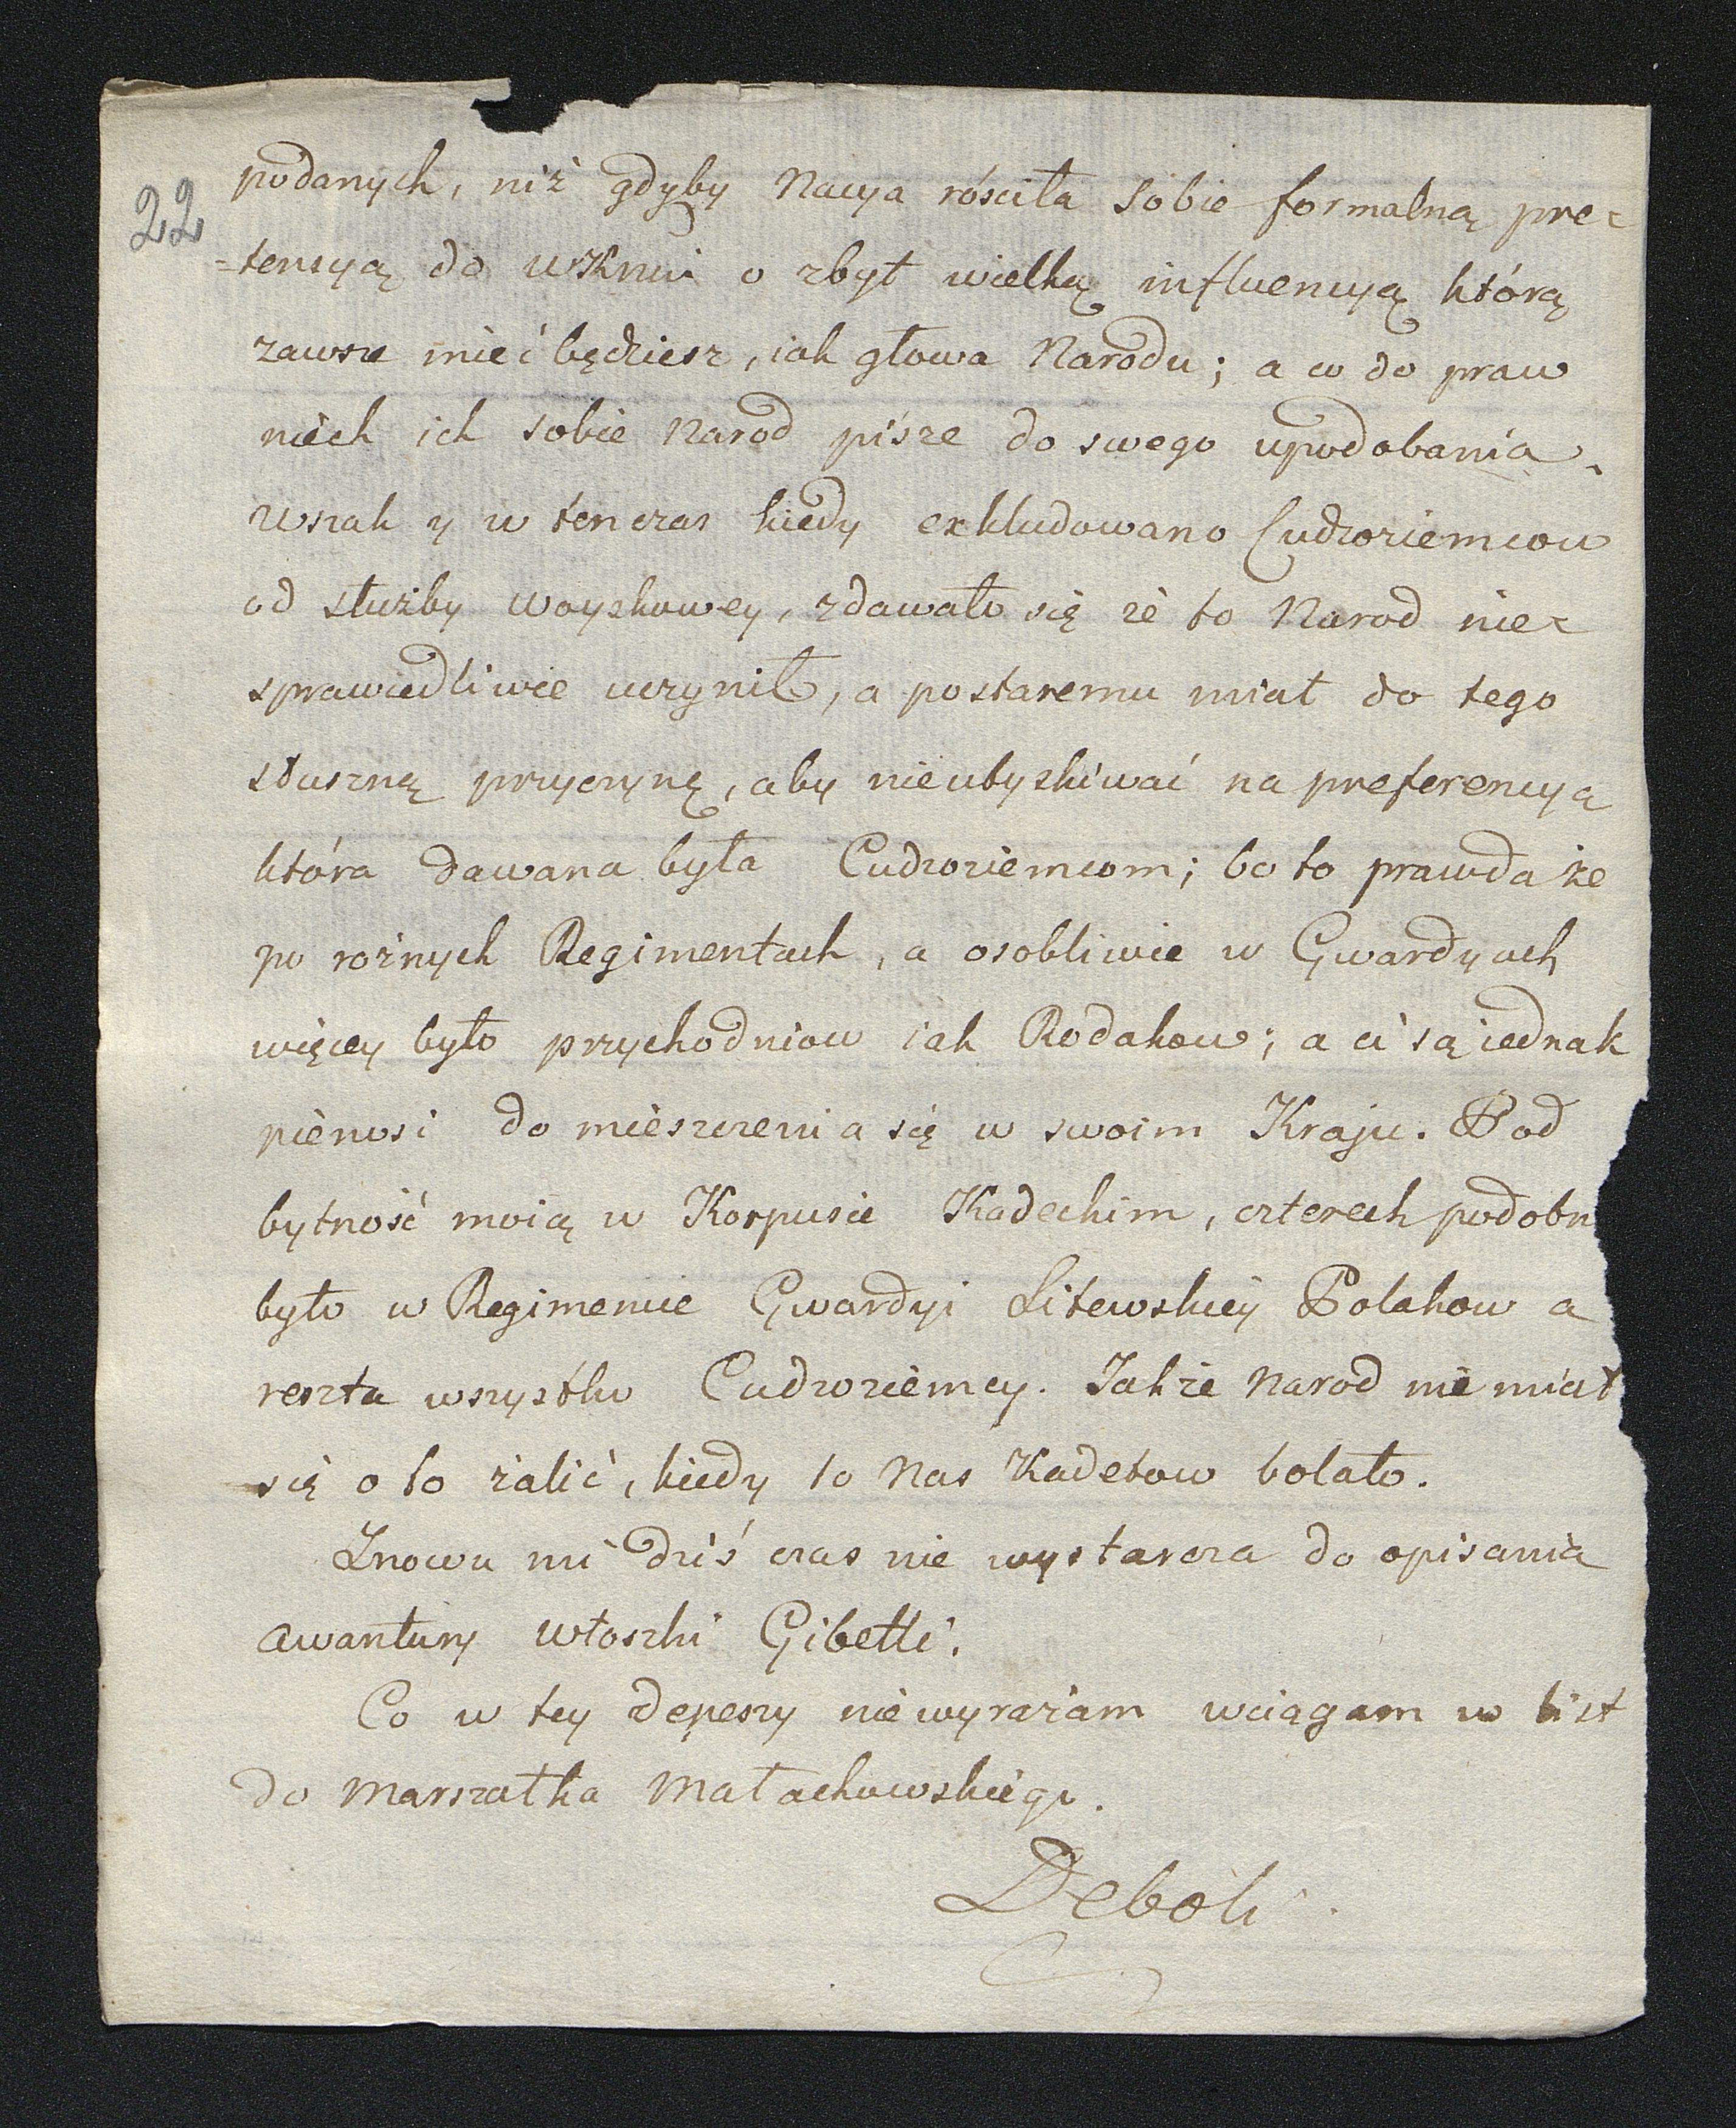 22
podanych, niż gdyby Nacya rościła sobie formalną pre=
=tensyą do WKMci o zbyt wielką influencyą którą
zawsze mieć będziesz, iak głowa Narodu; a co do praw
niech ich sobie Narod pisze do swego upodobania.
Wszak y w ten czas kiedy exkludowano Cudzoziemcow
od służby woyskowey, zdawało się że to Narod nie=
sprawiedliwie uczynił, a postaremu miał do tego
słuszną przyczynę, aby nieutyskiwać na preferencyą
która dawana była Cudzoziemcom; bo to prawda że
po rożnych Regimentach, a osobliwie w Gwardyach
więcey było przychodniow iak Rodakow; a ci są iednak
pierwsi do mieszczenia się w swoim Kraju. Pod
bytność moią w Korpusie Kadeckim, czterech podobn
było w Regimencie Gwardyi Litewskiey Polakow a
reszta wszystko Cudzoziemcy. Jakże Narod nie miał
się o to żalić, kiedy to Nas Kadetow bolało.
Znowu mi dziś czas nie wystarcza do opisania
awantury Włoszki Gibetti.
Co w tey depeszy niewyrażam wciągam w list
do Marszałka Małachowskiego.
Deboli.